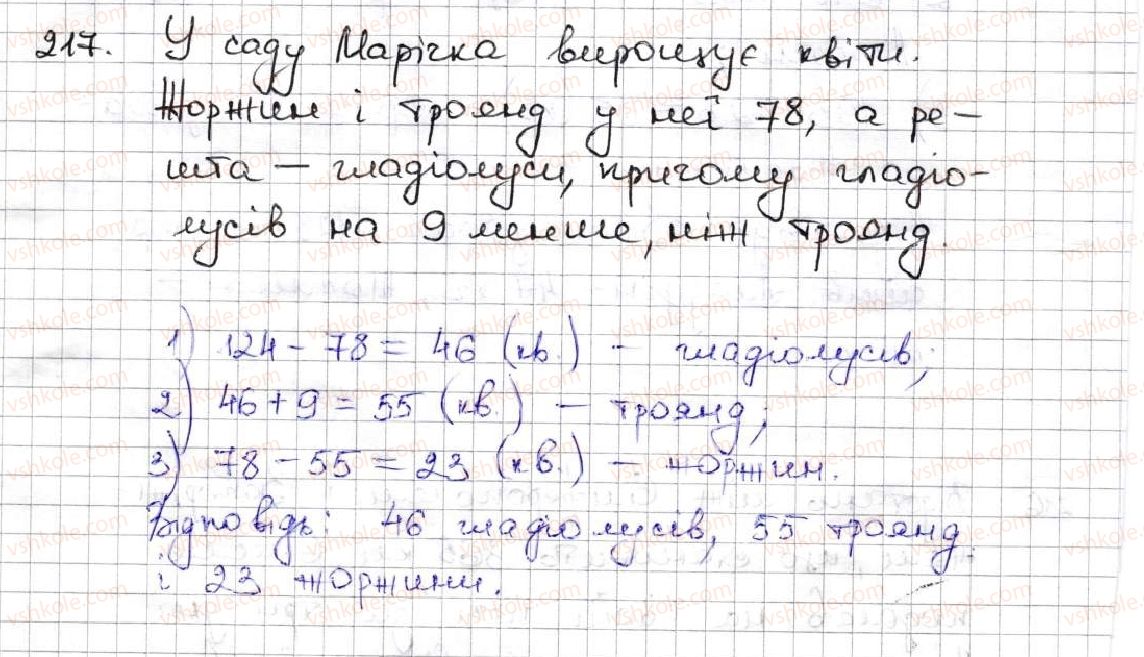 217. У саду Марічка вирощує квіти.
Жоржин і троянд у неї 78, а ре-
шта - гладіолуси, причому гладіо-
лусів на 9 менше, ніж троянд.
1) 124 - 78 = 46 (кв.) - гладіолусів;
2) 46 + 9 = 55 (кв.) - троянд;
3) 78 - 55 = 23 (кв.) - жоржин.
Відповідь: 46 гладіолусів, 55 троянд
і 23 жоржини.